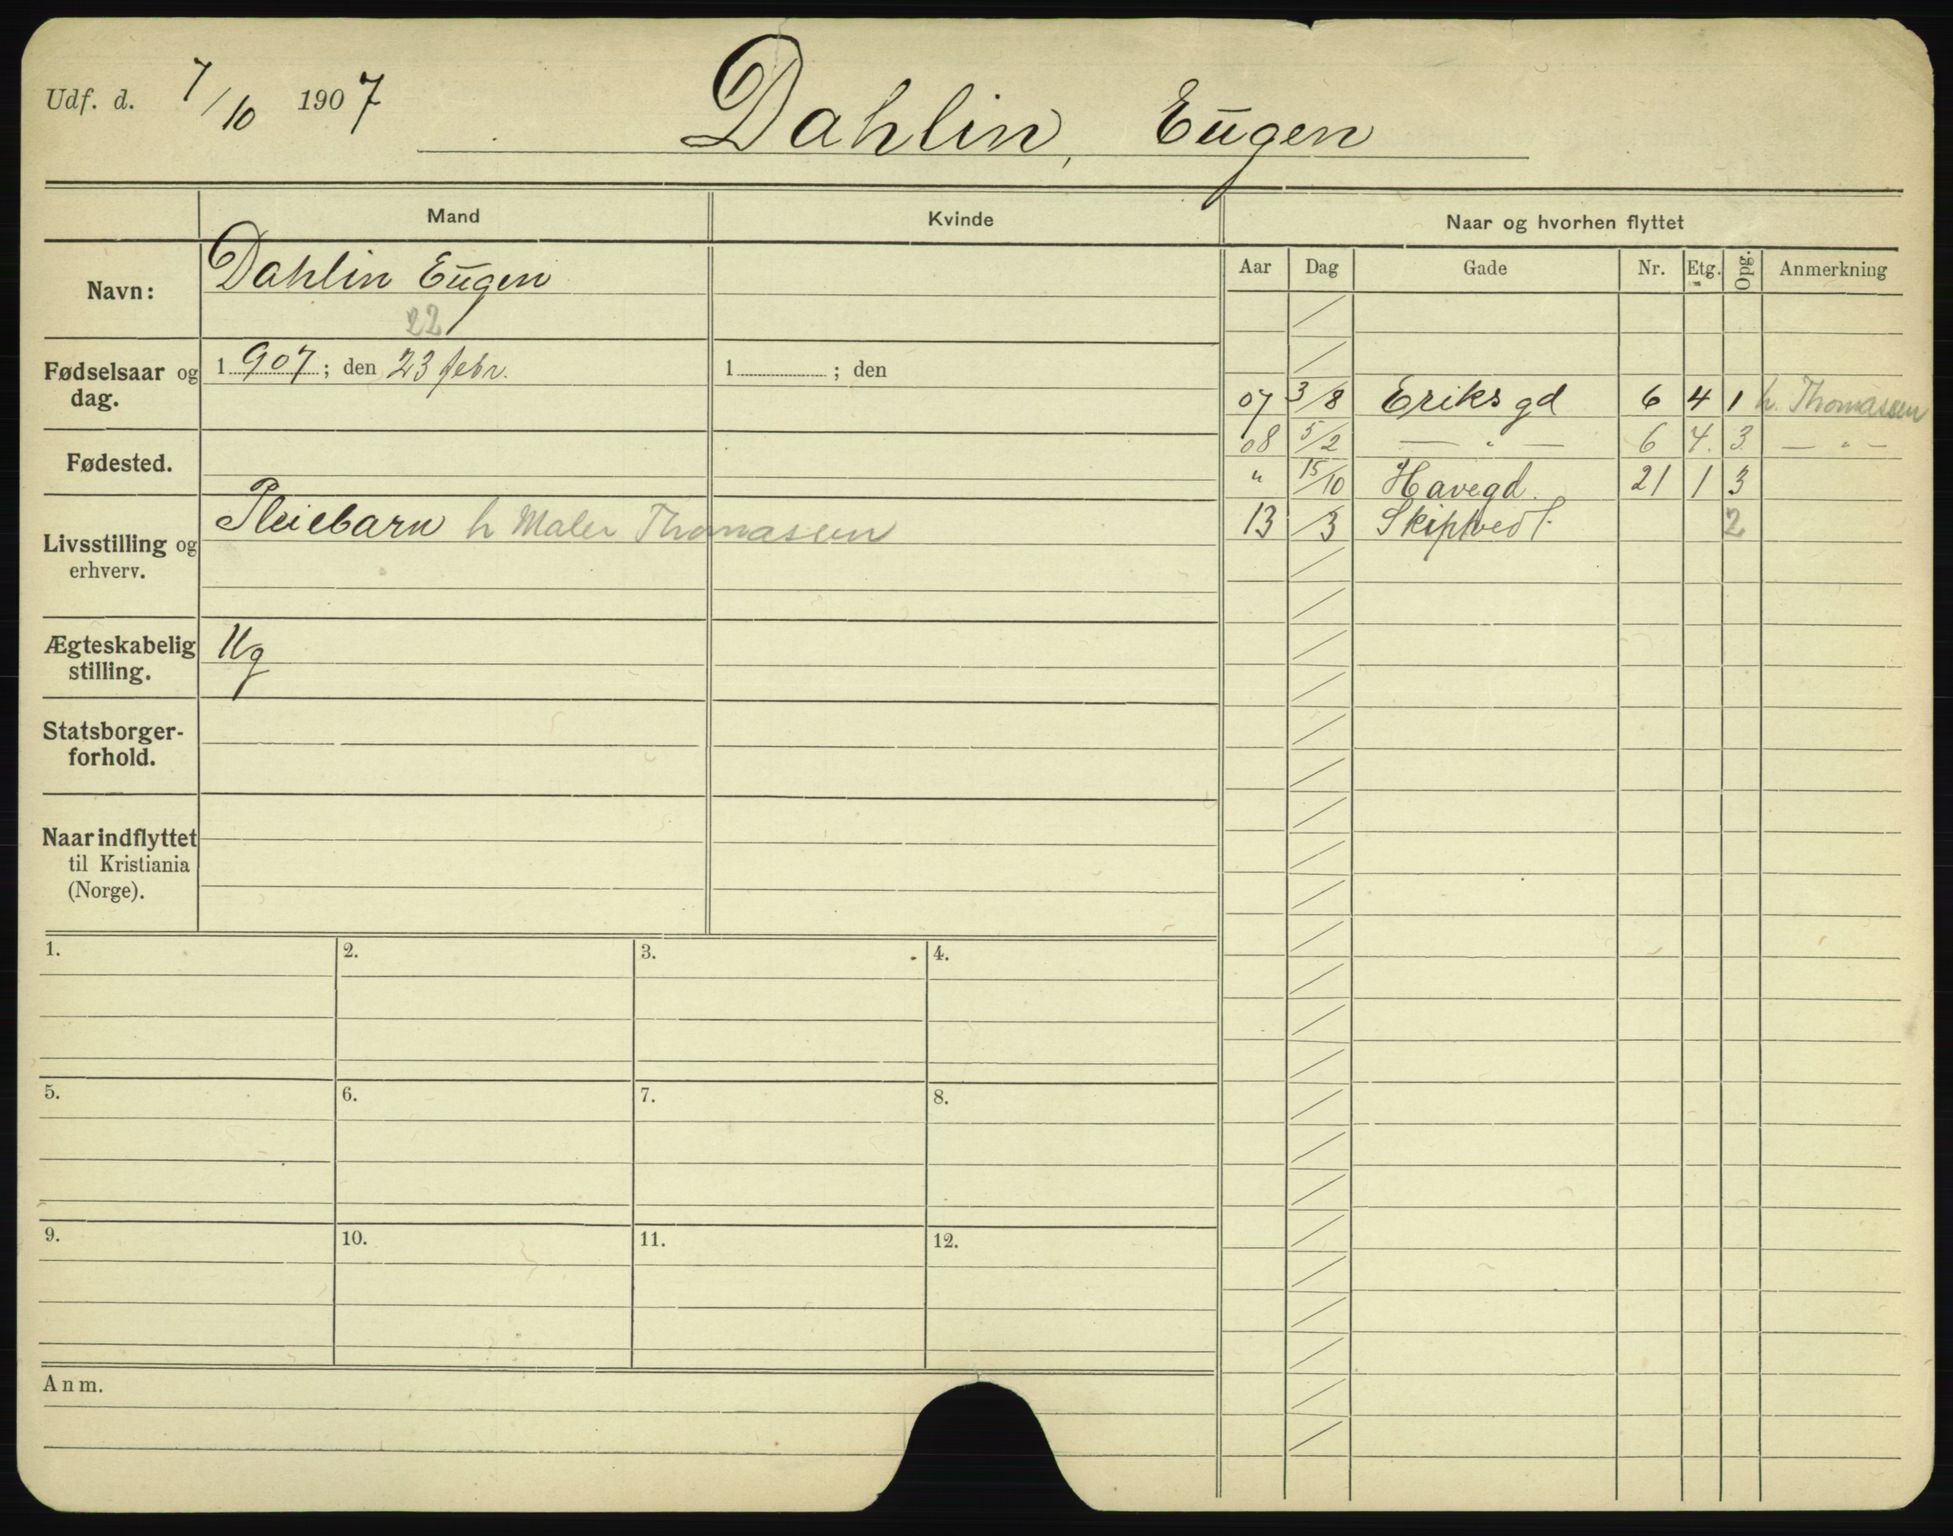 Udf. d. 7/10 1907
Dahlin, Eugen
Mand Kvinde Naar og hvorhen flyttet
Aar Dag Gade Nr. Etg. Opg. Anmerkning
Navn: Dahlin Eugen
22
Fødselsaar og dag. 1907; den 23 febr. 1 ; den
Fødested.
Livsstilling og erhverv. Pleiebarn h Maler Thomassen
Ægteskabelig stilling. Ug
Statsborger-
forhold.
Naar indflyttet
til Kristiania
(Norge).
07 3/8 Eriks gd 6 4 1 h. Thomassen
08 5/2 — " — 6 4. 3 — " —
" 15/10 Havegd. 21 1 3
13 /3 Skiptvedt. 2
1. 2. 3. 4.
5. 6. 7. 8.
9. 10. 11. 12.
Anm.